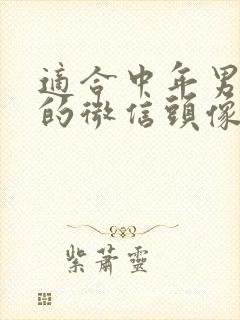 適合中年男
的微信頭像
紫蕭靈